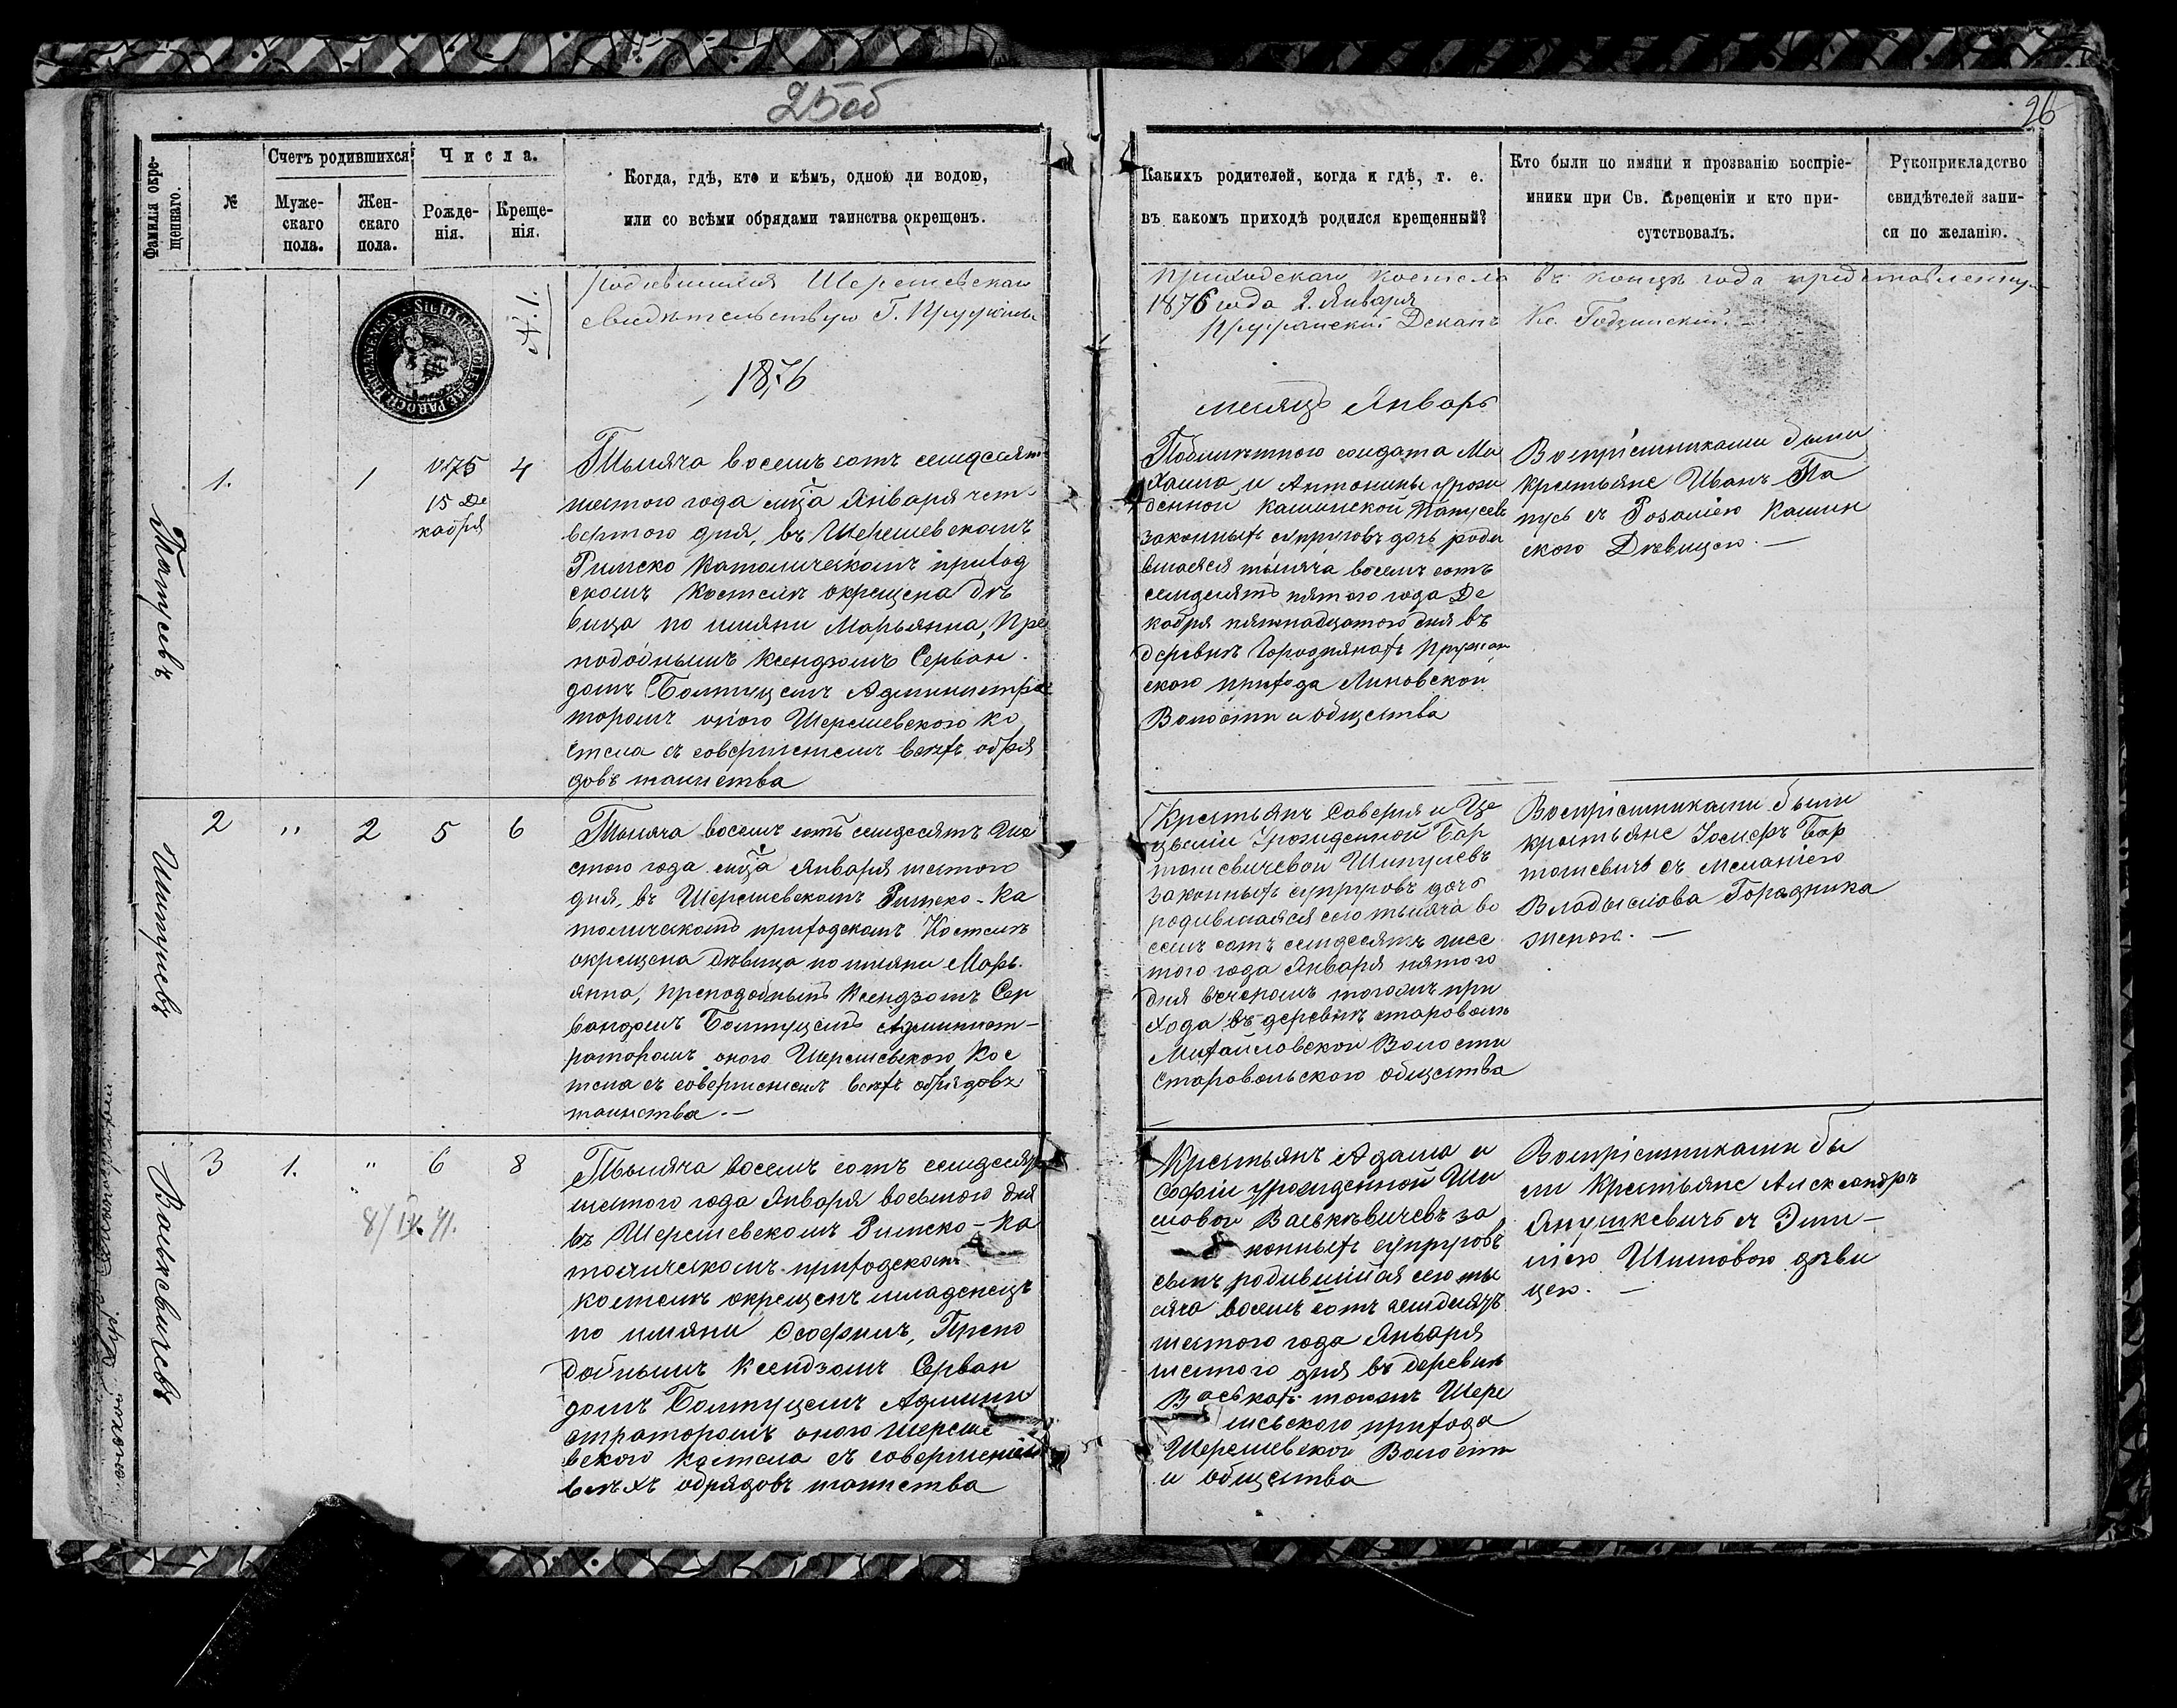 25об
26
Фамилія окрещеннаго.
№
Счетъ родившихся
Мужескаго пола.
Женскаго пола.
Числа.
Рожденія.
Крещенія.
Когда, гдѣ, кто и кѣмъ, одною ли водою,
или со всѣми обрядами таинства окрещенъ.
Какихъ родителей, когда и гдѣ, т. е.
въ какомъ приходѣ родился крещенный?
Кто были по имяни и прозванію воспріе-
мники при Св. Крещеніи и кто при-
сутствовалъ.
Рукоприкладство
свидѣтелей запи-
си по желанію.
родившимся Шерешевскаго
свидѣтельствую Г. Пружаны
приходскаго костела въ концѣ года представленную
1876 года 2. Января
Пружанскій Деканъ Кс.
1876
месяцъ Январь
Татусевъ
1.
1
1875
15 Де
кабря
4
Тысяча восемъ сотъ семдесятъ
шестого года мца Января чет-
вертого дня, въ Шерешевскомъ
Римско Католическомъ приход
скомъ Костелѣ окрещена дѣ
вица по имяни Марьянна, Пре
подобнымъ Ксендзомъ Серван
домъ Болтуцемъ Администра
торомъ оного Шерешевского Ко
стела съ совершениемъ всехъ обря
довъ таинства
солдата Ми
хаила и Антонины урожд
денной Каминской Татусевъ
законныхъ супруговъ дочь роди
вшаяся тысяча восемъ сотъ
семдесятъ пятого года Де
кабря пятнадцатого дня въ
деревнѣ Городнянахъ Пружан
ского прихода Линовской
Волости и общества
Воспріемниками были
крестьяне Иванъ Та
тусь съ Розаліею Камин
ского Дѣвицею. —
Шипулевъ
2
"
2
5
6
Тысяча восемъ сотъ семдесятъ ше
стого года мца Января шестого
дня, въ Шерешевскомъ Римско-Ка
толическомъ приходскомъ Костелѣ
окрещена Дѣвица по имяни Марь-
янна, преподобнымъ Ксендзомъ Сер
вандомъ Болтуцемъ Админист-
раторомъ оного Шерешевского Кос
тела съ совершениемъ всехъ обрядовъ
таинства. —
Крестьянъ Саверія и Це
циліи Урожденной Бар
тошевичевой Шипулевъ
законныхъ супруговъ дочь
родившаяся сего тысяча во
семъ сотъ семдесятъ шес
того года Января пятого
дня вечеромъ тогожъ при
хода въ деревнѣ староволѣ
Михайловской Волости
Старовольского общества
Воспріемниками были
крестьяне Іосифъ Бар
тошевичъ съ Меланіею
Владыслова Горадника
женою. —
Васькевичевъ
3
1.
"
6
8
8/IX 41.
Тысяча восемъ сотъ семдесятъ
шестого года Января восьмого дня
въ Шерешевскомъ Римско-Ка
толическомъ приходскомъ
костелѣ окрещенъ младенецъ
по имяни Ѳеофилъ, Препо
добнымъ Ксендзомъ Серван
домъ Болтуцемъ Админи
страторомъ оного Шереше
вского Костела съ совершениемъ
всѣхъ обрядовъ таинства
Крестьянъ Адама и
Софіи урожденной Ши
ловой Васькѣвичевъ за
конныхъ супруговъ
сынъ родившийся сего ты
сяча восемъ сотъ семдесятъ
шестого года Января
шестого дня въ деревнѣ
Васькахъ тогожъ Шере
шевского прихода
Шерешевской Волости
и общества
Воспріемниками бы
ли Крестьяне Александръ
Янушкевичъ съ Эми-
ліею Шиловою дѣви
цею. —